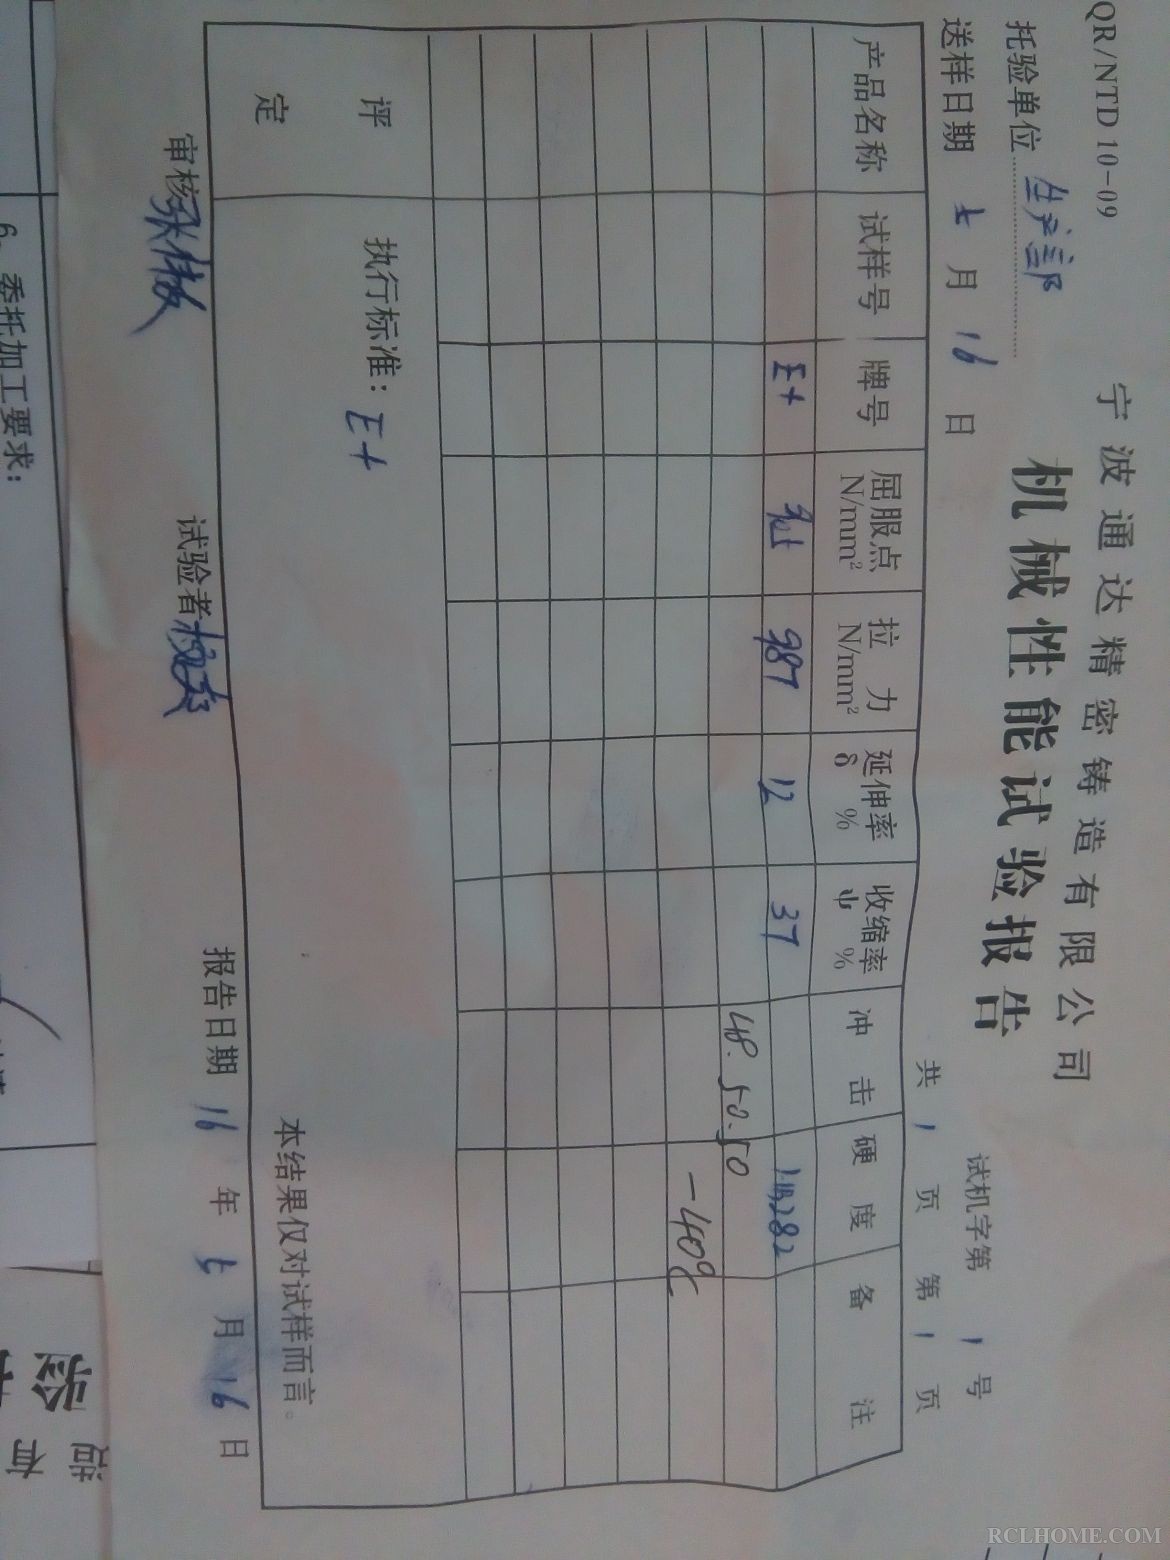 QR/NTD 10-09
宁波通达精密铸造有限公司
机械性能试验报告
托验单位 生产部
试机字第 1 号
送样日期 七 月 16 日
共 1 页 第 1 页
产品名称 试样号 牌号 屈服点 N/mm² 拉力 N/mm² 延伸率 δ % 收缩率 ψ % 冲击 硬度 备注
E+ 987 12 37 HB282
48.50.50
-40℃
评定
执行标准：E+
本结果仅对试样而言。
审核
试验者
报告日期 16 年 七 月 16 日
6、委托加工要求：
验
造
有
RCLHOME.COM